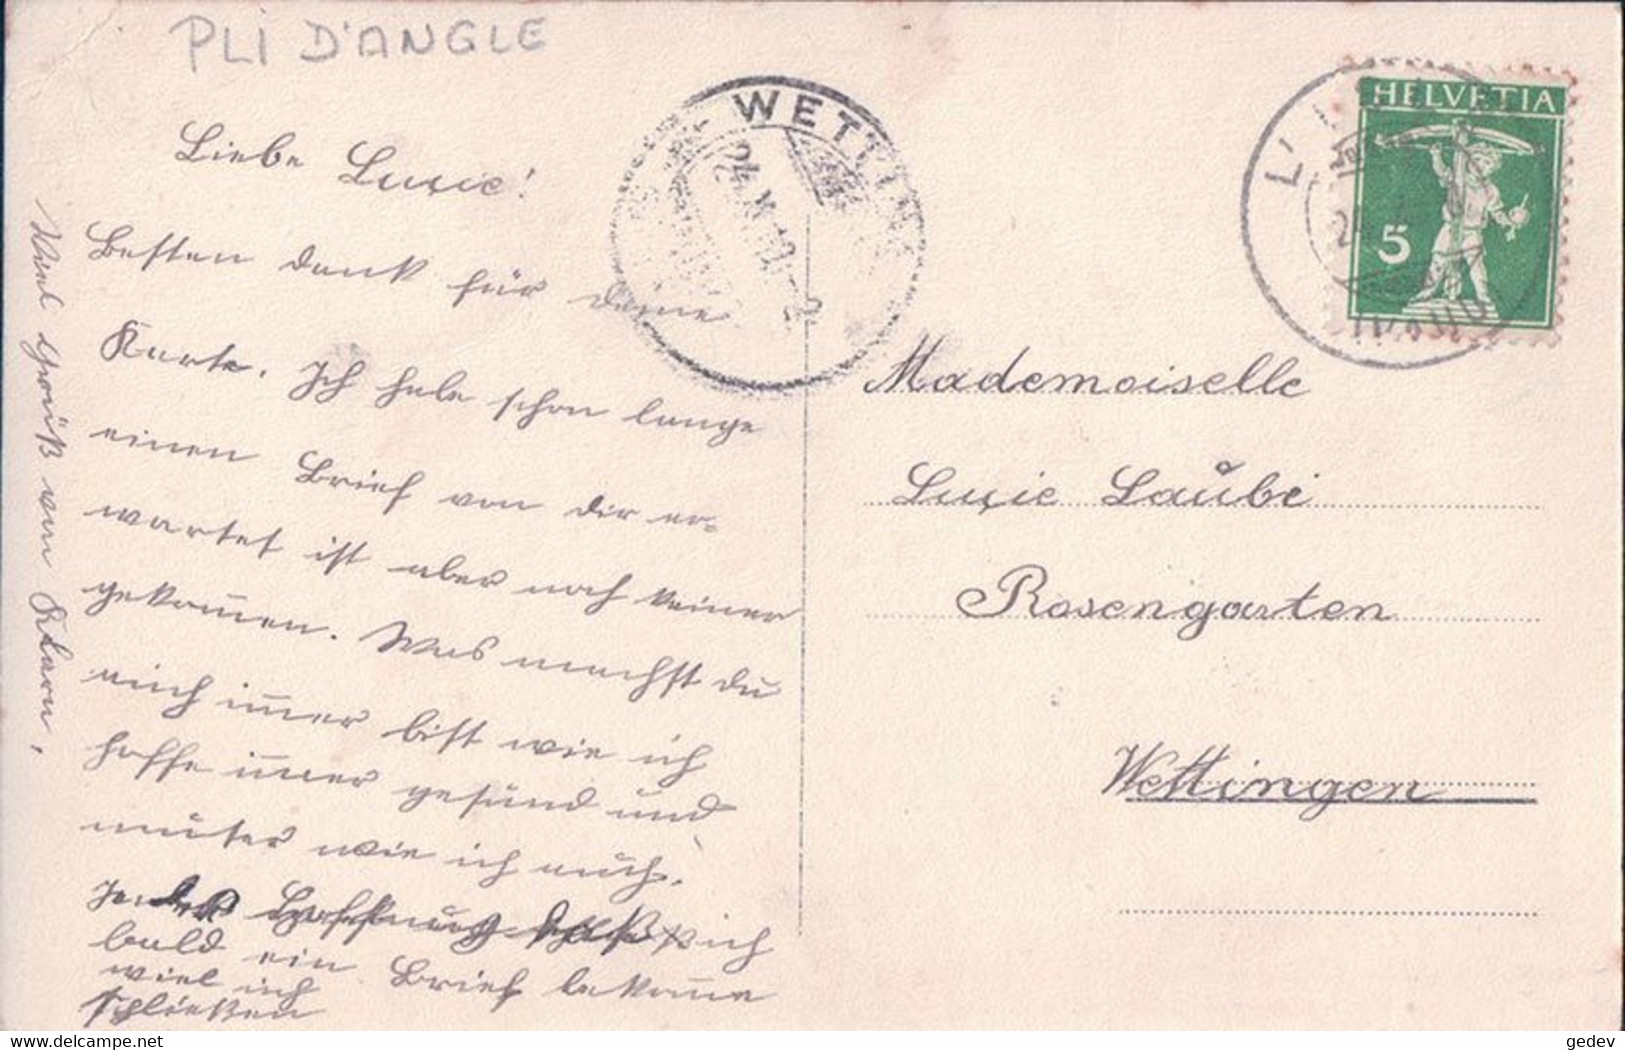 PLI D'ANGLE
Liebe Luzie!
Besten dank für deine
Karte. Ich habe schon lange
einen Brief von dir er-
wartet ist aber noch keiner
gekom̅en. Was machst du
auch im̅er bist wie ich
hoffe im̅er gesund und
munter wie ich auch.
In der Hoffnung daß ich
bald ein Brief bekom̅e
wiel ich
schließen
Viel Grüß von Klara.
WETTIN
24. X
HELVETIA
5
L'
Mademoiselle
Luzie Laubi
Rosengarten
Wettingen
www.delcampe.net
gedev